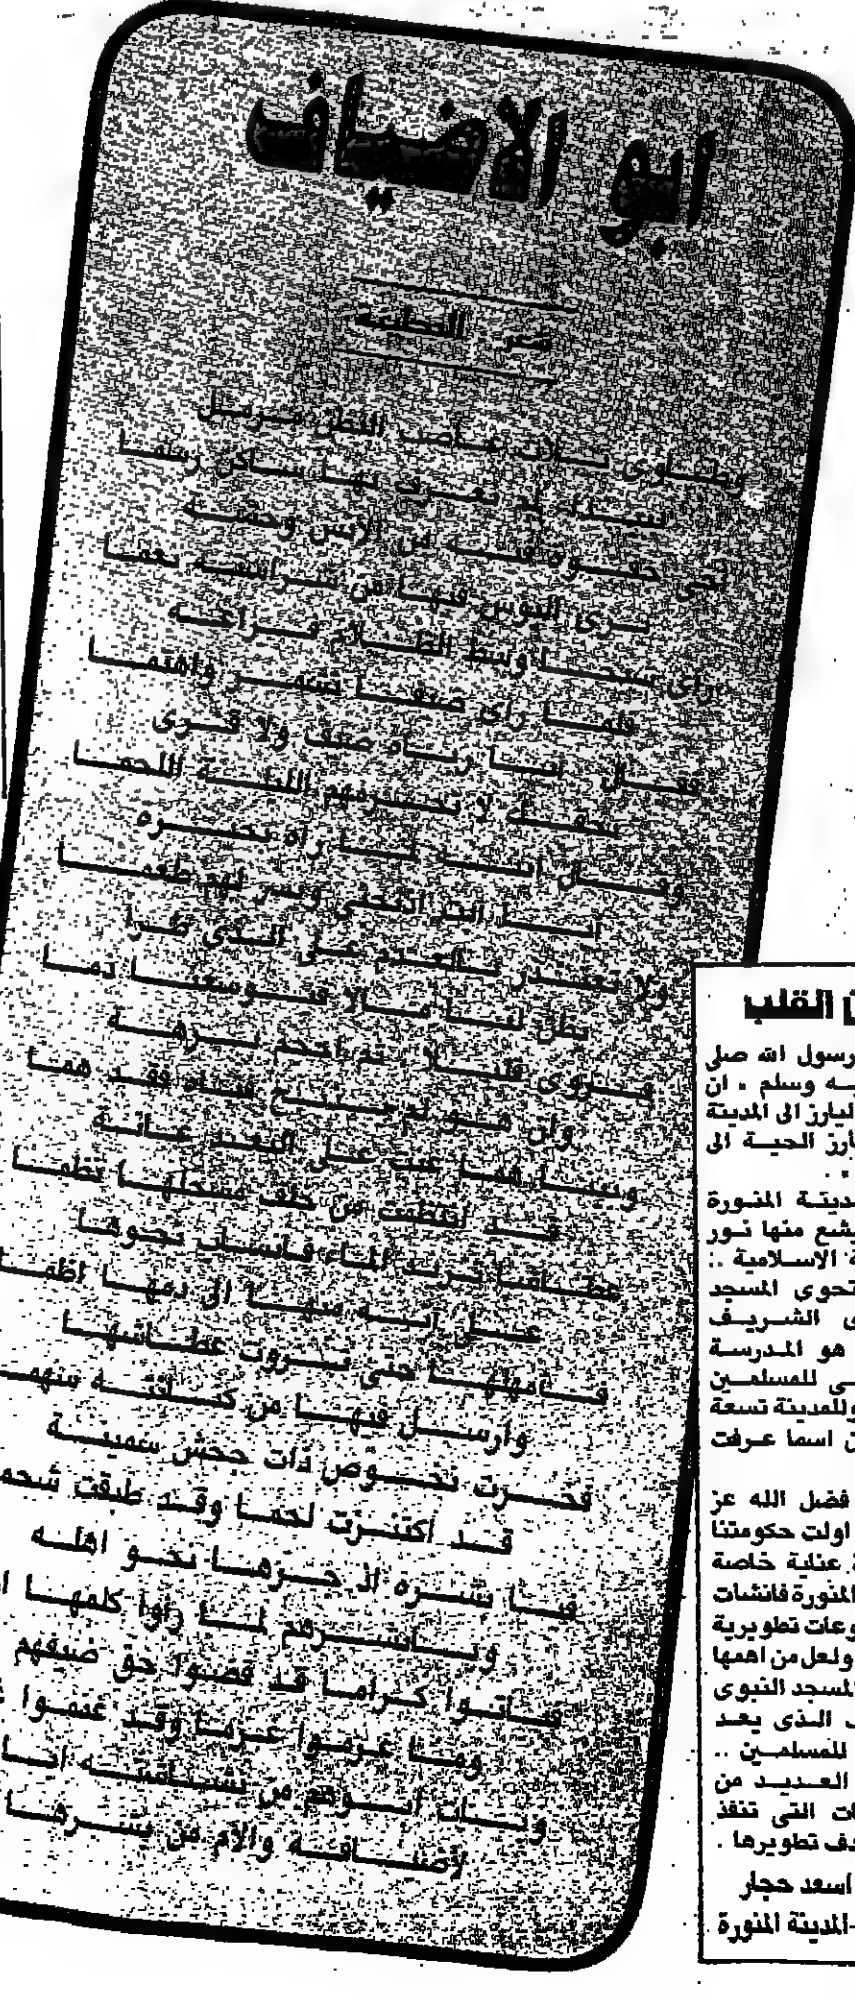 ابو الاضياف
شعر الحطيئه
وطـاوى ثـلاث عـاصب البطن مـرمـل
ببيـداء لم يعـرف بهـا سـاكن رسمـا
أخى جفـوة فيـه من الانس وحشـة
يـرى البؤس فيهـا من شـراستـه نعمـا
رأى شبحـا وسط الظـلام فـراعـه
فلمـا رأى ضيفـا تشمـر واهتمـا
فقـال هيـا ربـاه ضيف ولا قـرى
بحقـك لا تحـرمهم الليلـة اللحمـا
وقـال ابنـه لمـا رآه بحيـره
ايـا ابت اذبحنى ويسر لهم طعمـا
ولا تعتـذر بـالعـدم عـلى الـذى طـرا
يظن لنـا مـالا فيـوسعنـا ذمـا
فـروى قليـلا ثم احجم بـرهـة
وان هـو لم يـذبـح فتـاه فقـد همـا
وبينـا همـا عنت عـلى البعـد عـانـة
قـد انتظمت من خلف مسحلهـا نظمـا
عطـاشـا تـريـد المـاء فـانسـاب نحـوهـا
عـلى أنـه منهـا الى دمهـا اظمـا
فـامهلهـا حتى تـروت عطـاشهـا
وارسـل فيهـا من كنـانتـه سهمـ
فخـرت نحـوص ذات جحش سمينـة
قـد أكتنـزت لحمـا وقـد طبقت شحمـ
فيـا بشـره اذ جـرهـا نحـو اهلـه
ويـا بشـرهم لمـا رأوا كلمهـا
فبـاتـوا كـرامـا قـد قضـوا حق ضيفهم
ومـا غـرمـوا غـرمـا وقـد غنمـوا
وبـات ابـوهم من بشـاشتـه ابـا
لاضيـافـه والام من بشـرهـا
القلب
رسول الله صلى
ـه وسلم . ان
ليارز الى المدينة
ارز الحيـة الى
. .
ـدينـة المنـورة
يشع منها نـور
ة الاسـلامية ..
تحوى المسجد
ى الشـريـف
هو المـدرسـة
ـى للمسلمـين
وللمدينة تسعة
ن اسما عـرفت
فضل الله عز
اولت حكومتنا
عناية خاصة
المنورة فانشات
وعات تطويرية
ولعل من اهمها
المسجد النبوى
ـ الـذى يعـد
للمسلمـين ..
العـديـد من
ات التى تنفذ
ـدف تطويرها .
اسعد حجار
-المدينة المنورة